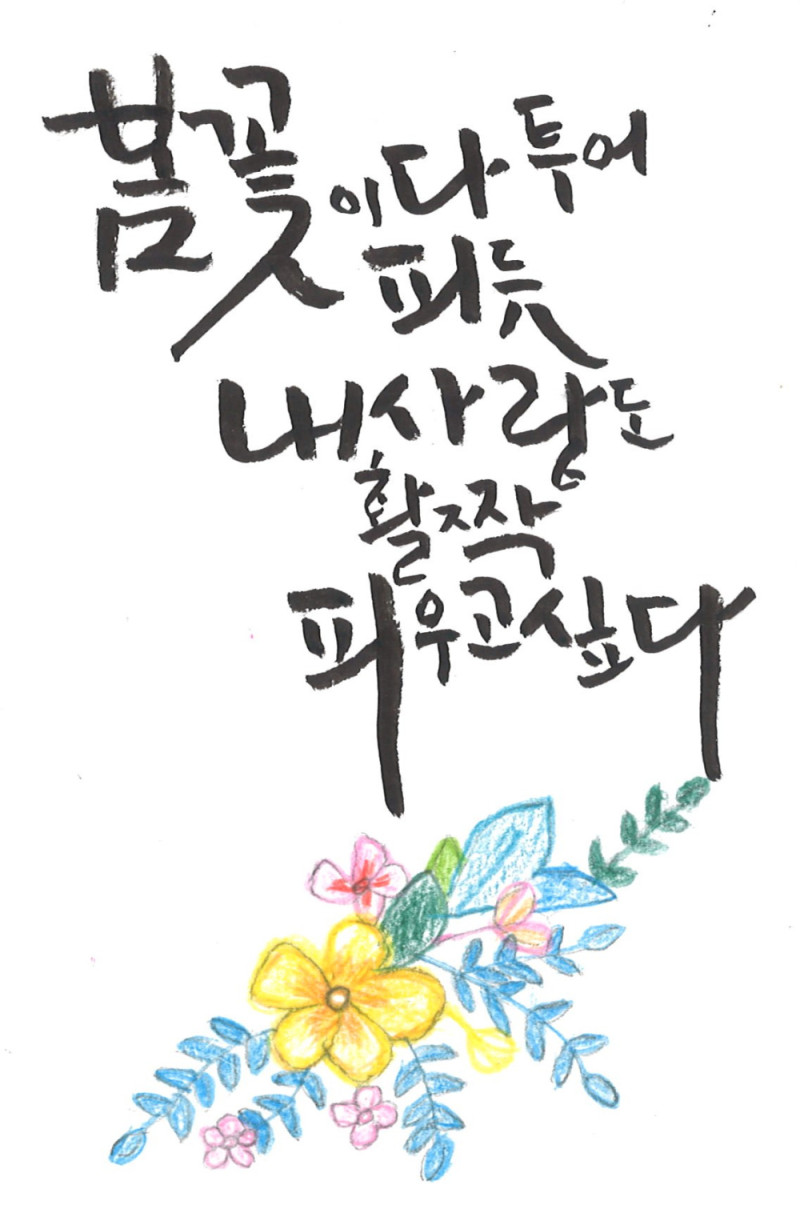 봄꽃이 다투어
피듯
내 사랑도
활짝
피우고 싶다